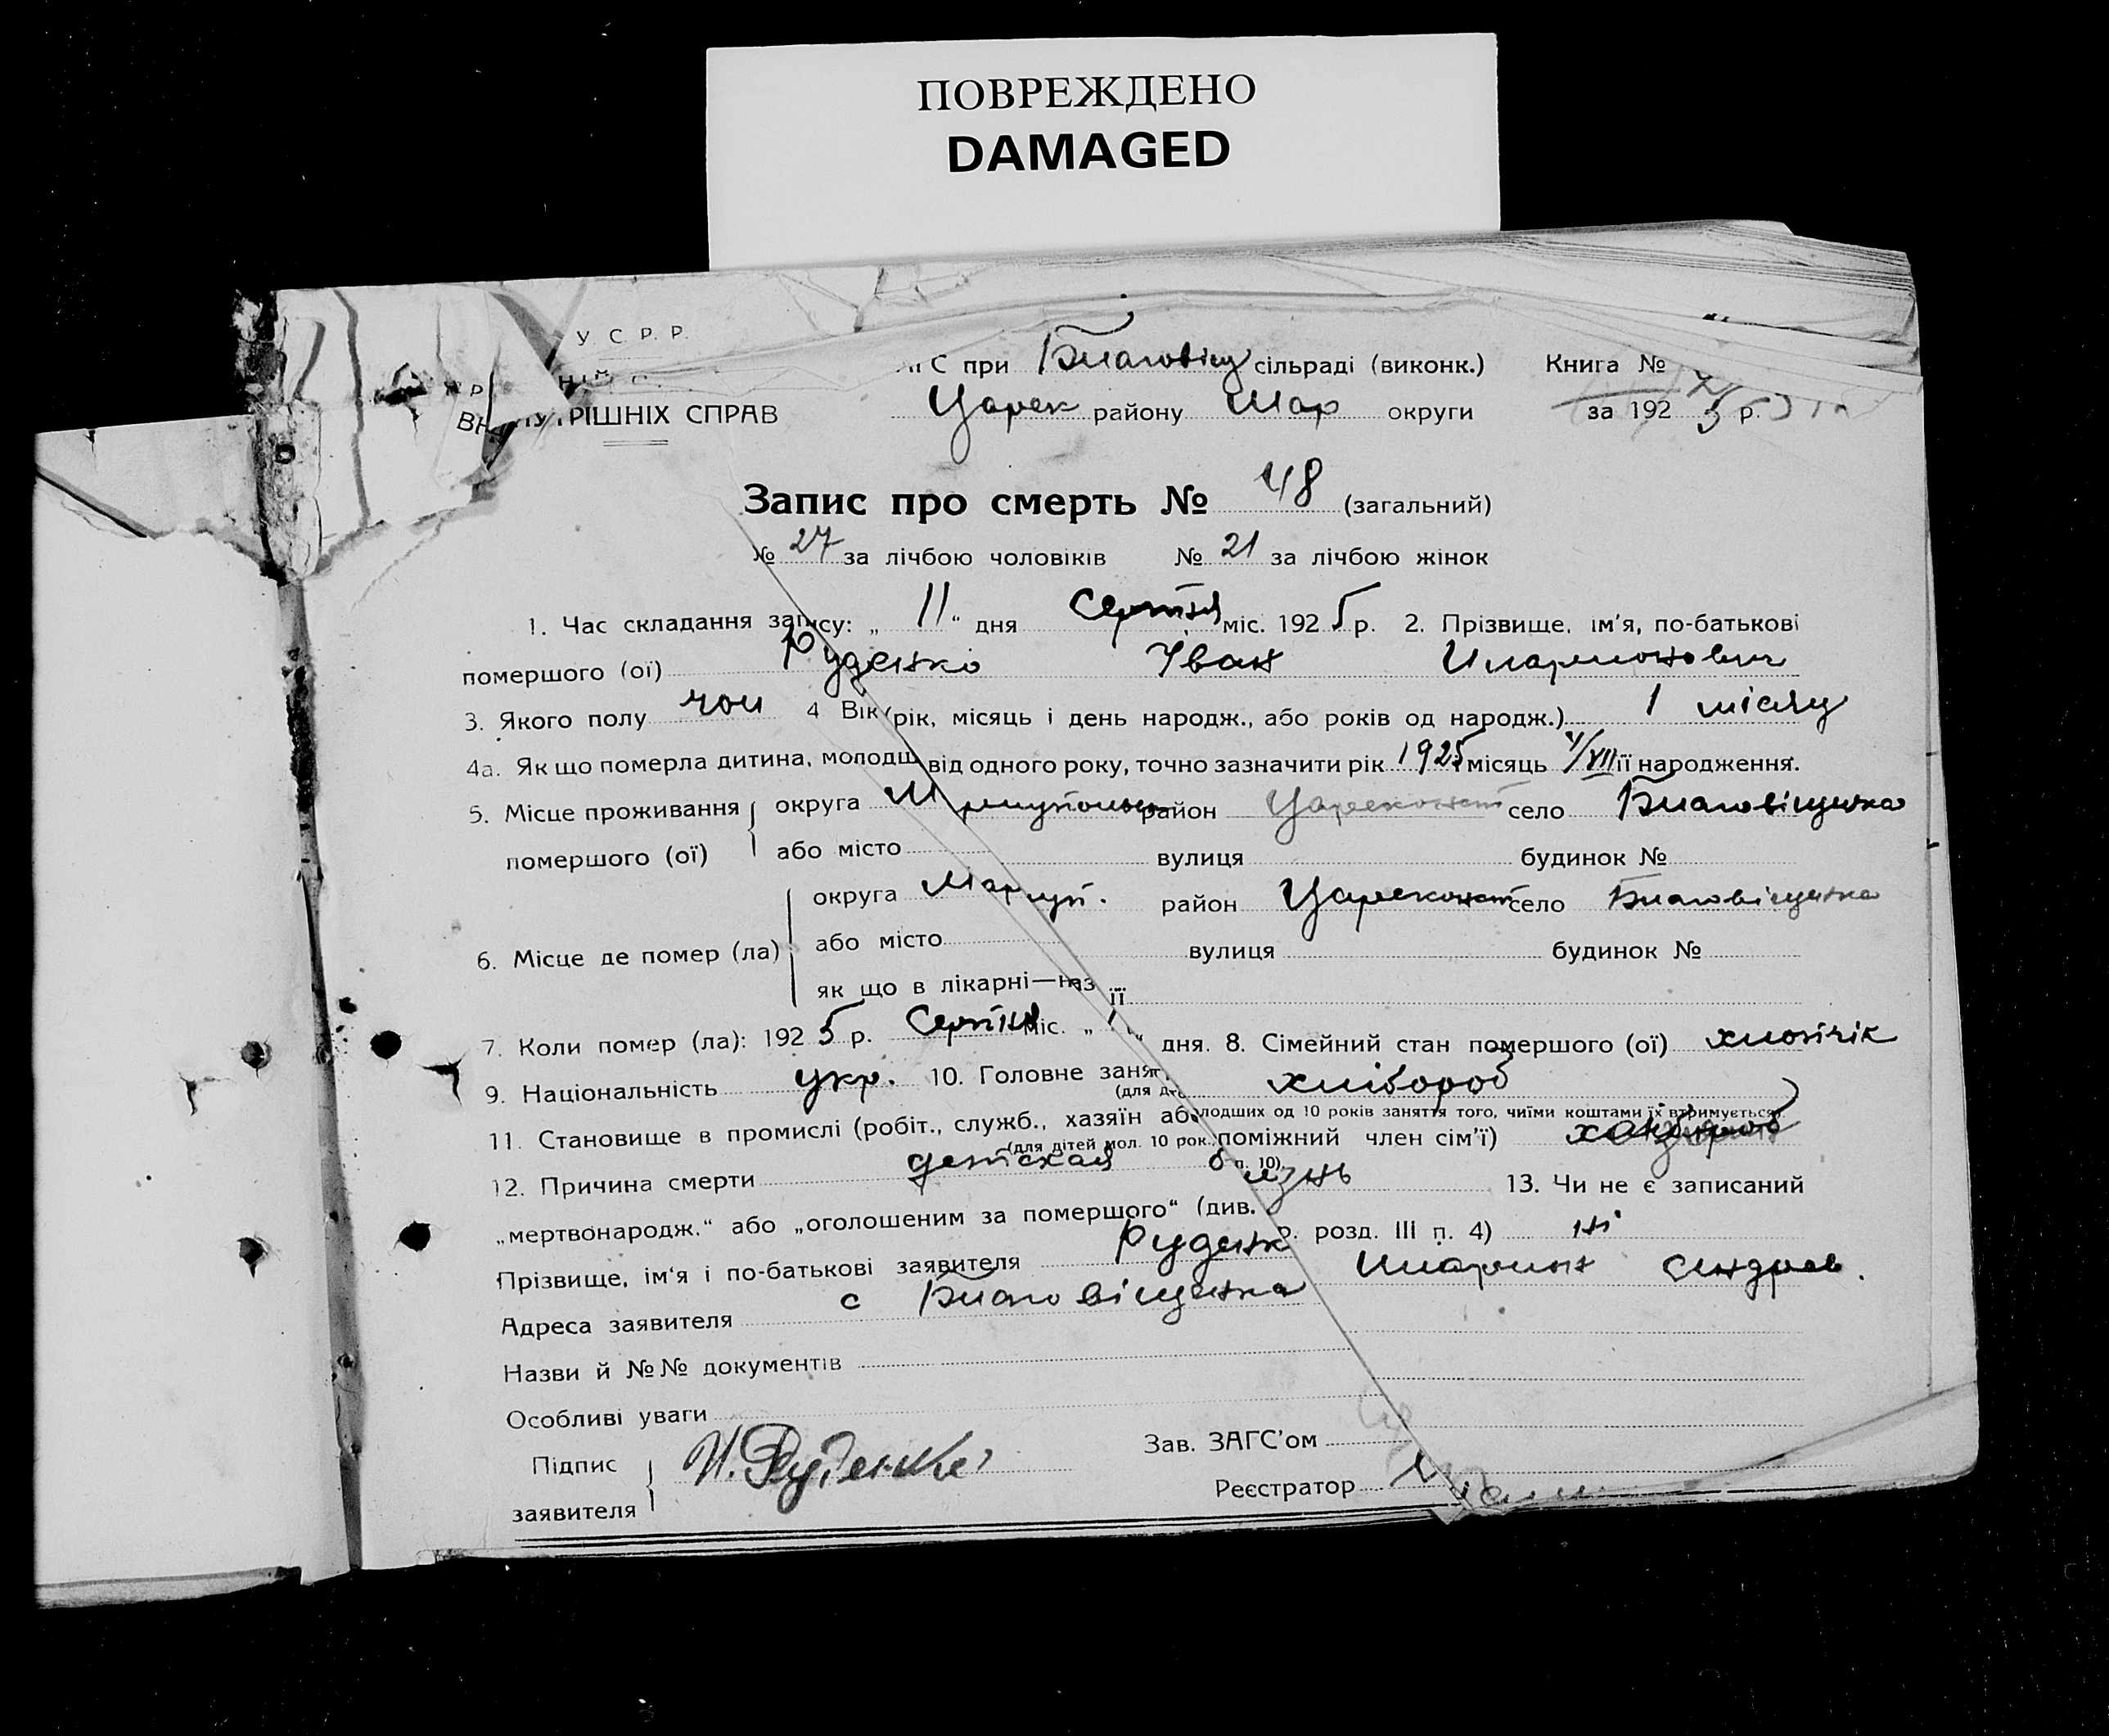 ПОВРЕЖДЕНО
DAMAGED
У С Р Р.
С при Благовіщ сільраді (виконк.) Книга №
ВНУТРІШНІХ СПРАВ Царек району Мар округи за 192 5 р.
Запис про смерть № 48 (загальний)
№ 27 за лічбою чоловіків № 21 за лічбою жінок
1. Час складання запису: „ 11 “ дня Серпня міс. 192 5 р. 2. Прізвище, ім’я, по-батькові
помершого (ої) Руденко Іван Иларионович
3. Якого полу чол 4 Вік (рік, місяць і день народж., або років од народж.) 1 місяц
4а. Як що померла дитина, молодш від одного року, точно зазначити рік 1925 місяць /VII її народження.
5. Місце проживання округа Мариупольск район Царекошт село Благовіщенка
помершого (ої) або місто вулиця будинок №
округа Мариуп. район Царекошт село Благовіщенка
6. Місце де помер (ла) або місто вулиця будинок №
як що в лікарні—наз її
7. Коли помер (ла): 192 5 р. Серпня міс. „ “ дня. 8. Сімейний стан помершого (ої) хлопчік
9. Національність укр. 10. Головне занят хлібороб
(для д лодших од 10 років заняття того, чиїми коштами їх втримується)
11. Становище в промислі (робіт., служб., хазяїн або поміжний член сім’ї)
(для дітей мол. 10 рок. п. 10)
12. Причина смерти детская болезнь 13. Чи не є записаний
„мертвонародж.“ або „оголошеним за помершого“ (див. р. розд. III п. 4) ні
Прізвище, ім‘я і по-батькові заявителя Руденко Иларион Андреев.
Адреса заявителя с Благовіщенка
Назви й №№ документів
Особливі уваги
Підпис заявителя И. Руденко
Зав. ЗАГС’ом
Реєстратор